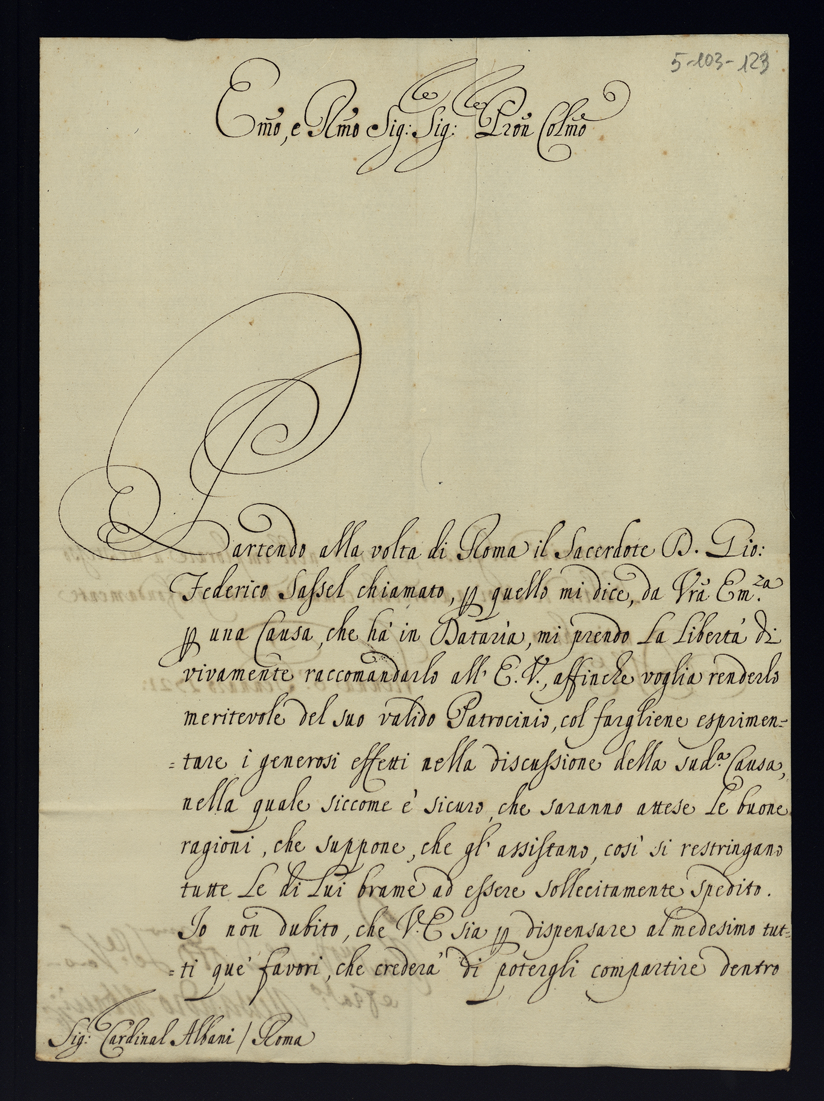 5-103-123
Emo, e Rmo Sig: Sig: Pron Colmo
Partendo alla volta di Roma il Sacerdote D. Gio:
Federico Sassel chiamato, ꝑ quello mi dice, da Vrã Em.za
ꝑ una Causa, che hà in Dataria, mi prendo La Libertà di
vivamente raccomandarlo all' E.V., affinche voglia renderlo
meritevole del suo valido Patrocinio, col fargliene esprimen=
=tare i generosi effetti nella discussione della sud.a Causa,
nella quale siccome è sicuro, che saranno attese Le buone
ragioni, che suppone, che gl' assistano, così si restringano
tutte Le di Lui brame ad essere sollecitamente spedito.
Io non dubito, che V.E sia ꝑ dispensare al medesimo tut=
=ti que' favori, che crederà di potergli compartire dentro
Sig: Cardinal Albani / Roma